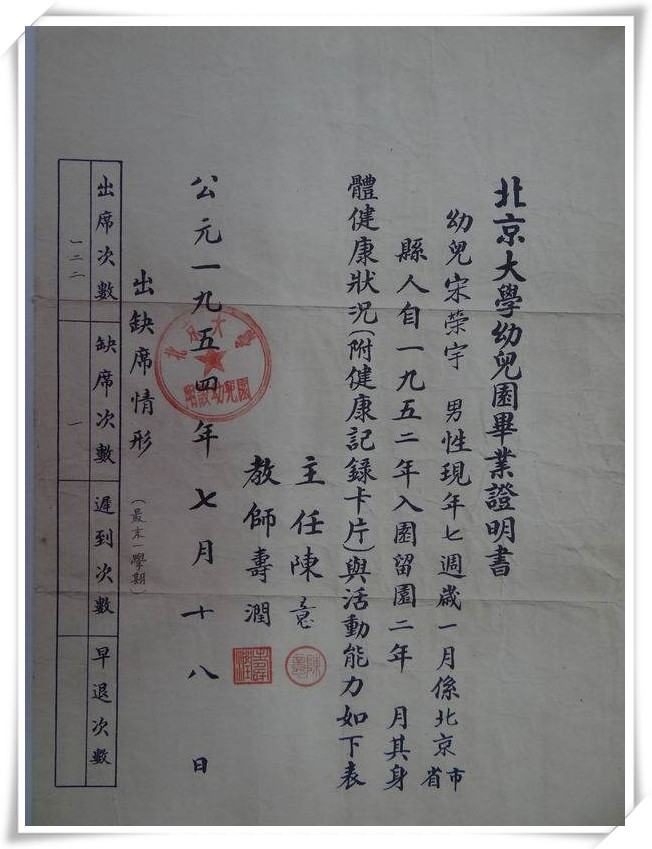 北京大學幼兒園畢業證明書
幼兒宋榮宇 男性現年七週歲一月係北京市省
縣人自一九五二年入園留園二年 月其身
體健康狀况(附健康記錄卡片)與活動能力如下表
主任陳意
教師壽潤
公元一九五四年七月十八日
出缺席情形(最末一學期)
出席次數 缺席次數 遲到次數 早退次數
一二二 一